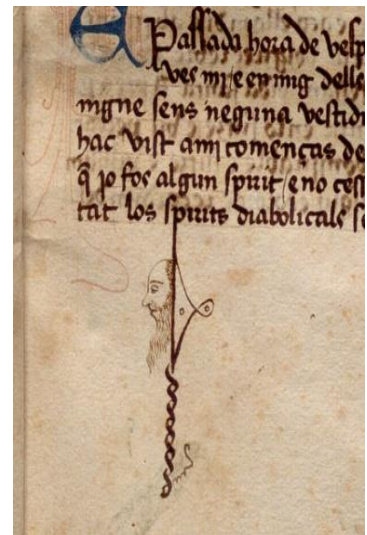 E Passada hora de vesp
ves mi e en mig delle
nigne sens neguna vestidu
hac vist a mi començas de
q̄ jo fos algun spirit / e no cess
tat los spirits diabolicals se